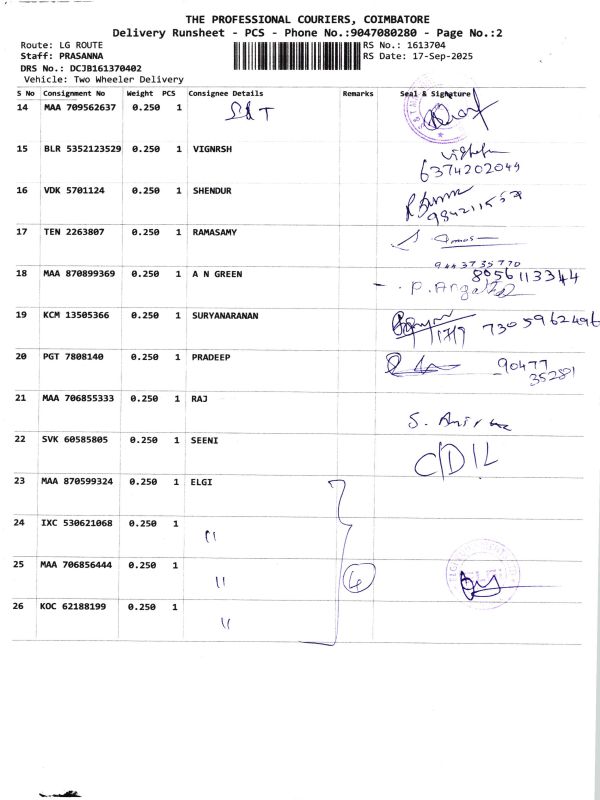 THE PROFESSIONAL COURIERS, COIMBATORE
Delivery Runsheet - PCS - Phone No.:9047080280 - Page No.:2
Route: LG ROUTE RS No.: 1613704
Staff: PRASANNA RS Date: 17-Sep-2025
DRS No.: DCJB161370402
Vehicle: Two Wheeler Delivery
S No Consignment No Weight PCS Consignee Details Remarks Seal & Signature
14 MAA 709562637 0.250 1
15 BLR 5352123529 0.250 1 VIGNRSH
6374202049
16 VDK 5701124 0.250 1 SHENDUR
17 TEN 2263807 0.250 1 RAMASAMY
9443735770
18 MAA 870899369 0.250 1 A N GREEN 8056113344
19 KCM 13505366 0.250 1 SURYANARANAN
17/9 7305962496
20 PGT 7808140 0.250 1 PRADEEP 90477
35281
21 MAA 706855333 0.250 1 RAJ
22 SVK 60585805 0.250 1 SEENI
C/D/L
23 MAA 870599324 0.250 1 ELGI
24 IXC 530621068 0.250 1 "
25 MAA 706856444 0.250 1 " 4
26 KOC 62188199 0.250 1 "